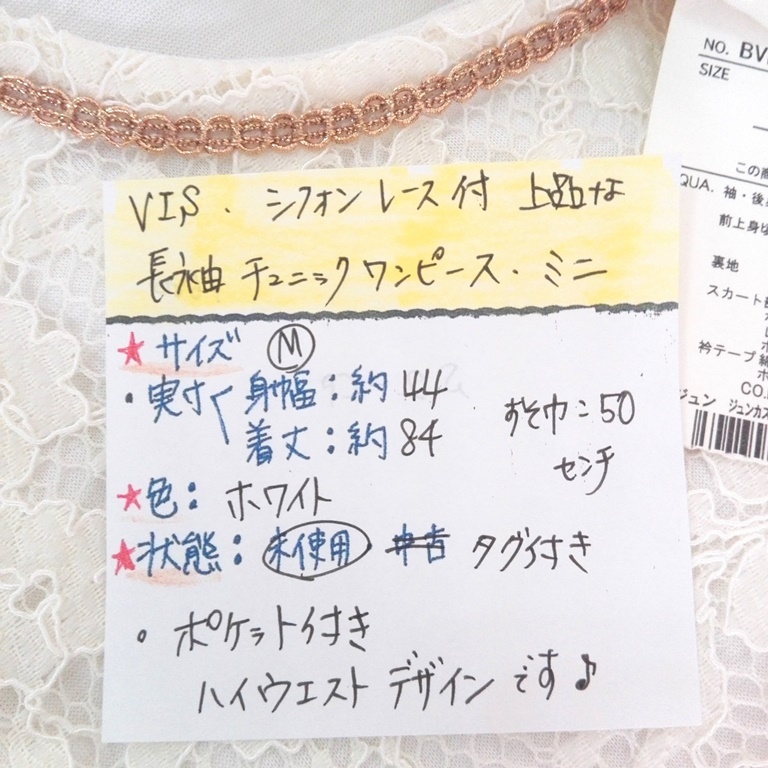 VIS. シフォンレース付 上品な
長袖 チュニックワンピース・ミニ
★サイズ Ⓜ
・実寸 身幅：約44
着丈：約84
すそ巾：50
センチ
★色：ホワイト
★状態：未使用 中古 タグ付き
・ポケット付き
ハイウエストデザインです♪
NO. BV
SIZE
この商
QUA. 袖・後
前上身頃
裏地
スカート
衿テープ
CO.
ジュン ジュンカス